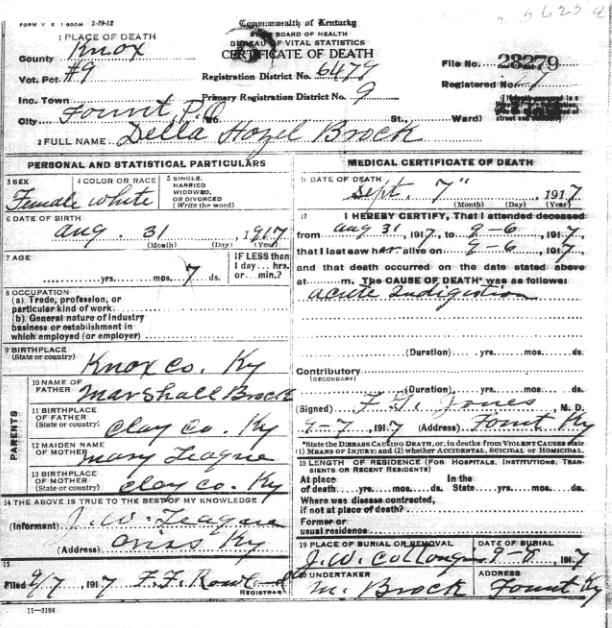 FORM V. S. 1-500M 2-29-12
Commonwealth of Kentucky
STATE BOARD OF HEALTH
BUREAU OF VITAL STATISTICS
CERTIFICATE OF DEATH
1 PLACE OF DEATH
County Knox
File No. 28279
Vot. Pct #9
Registration District No. 6479
Registered No. 27
Inc. Town
Primary Registration District No. 9
City Fount, P.O. No. St.; Ward)
2 FULL NAME Della Hazel Brock
PERSONAL AND STATISTICAL PARTICULARS
3 SEX Female
4 COLOR OR RACE white
5 SINGLE, MARRIED WIDOWED, OR DIVORCED (Write the word)
6 DATE OF BIRTH
Aug. 31, 1917
(Month) (Day) (Year)
7 AGE
yrs. mos. 7 ds.
IF LESS than 1 day... hrs. or min.?
8 OCCUPATION
(a) Trade, profession, or particular kind of work.
(b) General nature of industry business or establishment in which employed (or employer)
9 BIRTHPLACE
(State or country) Knox Co. Ky
PARENTS
10 NAME OF FATHER Marshall Brock
11 BIRTHPLACE OF FATHER (State or country) Clay Co. Ky
12 MAIDEN NAME OF MOTHER Mary Teague
13 BIRTHPLACE OF MOTHER (State or country) Clay Co. Ky
14 THE ABOVE IS TRUE TO THE BEST OF MY KNOWLEDGE
(Informent) J. W. Teague
(Address) Ky
15
Filed 9/7, 1917 F. F.
REGISTRAR
11-3184
MEDICAL CERTIFICATE OF DEATH
16 DATE OF DEATH
Sept. 7", 1917
(Month) (Day) (Year)
17 I HEREBY CERTIFY, That I attended deceased
from Aug 31, 1917, to 9-6, 1917
that I last saw her alive on 9-6, 1917
and that death occurred on the date stated above
at m. The CAUSE OF DEATH* was as follows:
Acute Indigestion
(Duration) yrs. mos. ds.
Contributory
(SECONDARY)
(Duration) yrs. mos. ds.
(Signed) F. G. Jones M. D.
9-7, 1917 (Address) Fount Ky
*State the DISEASE CAUSING DEATH, or, in deaths from VIOLENT CAUSES state
(1) MEANS OF INJURY; and (2) whether ACCIDENTAL, SUICIDAL or HOMICIDAL.
18 LENGTH OF RESIDENCE (FOR HOSPITALS, INSTITUTIONS, TRANSIENTS OR RECENT RESIDENTS)
At place of death yrs. mos. ds. In the State yrs. mos. ds.
Where was disease contracted, if not at place of death?
Former or usual residence
19 PLACE OF BURIAL OR REMOVAL J. W.
DATE OF BURIAL 9-8, 1917
20 UNDERTAKER M. Brock
ADDRESS Fount Ky